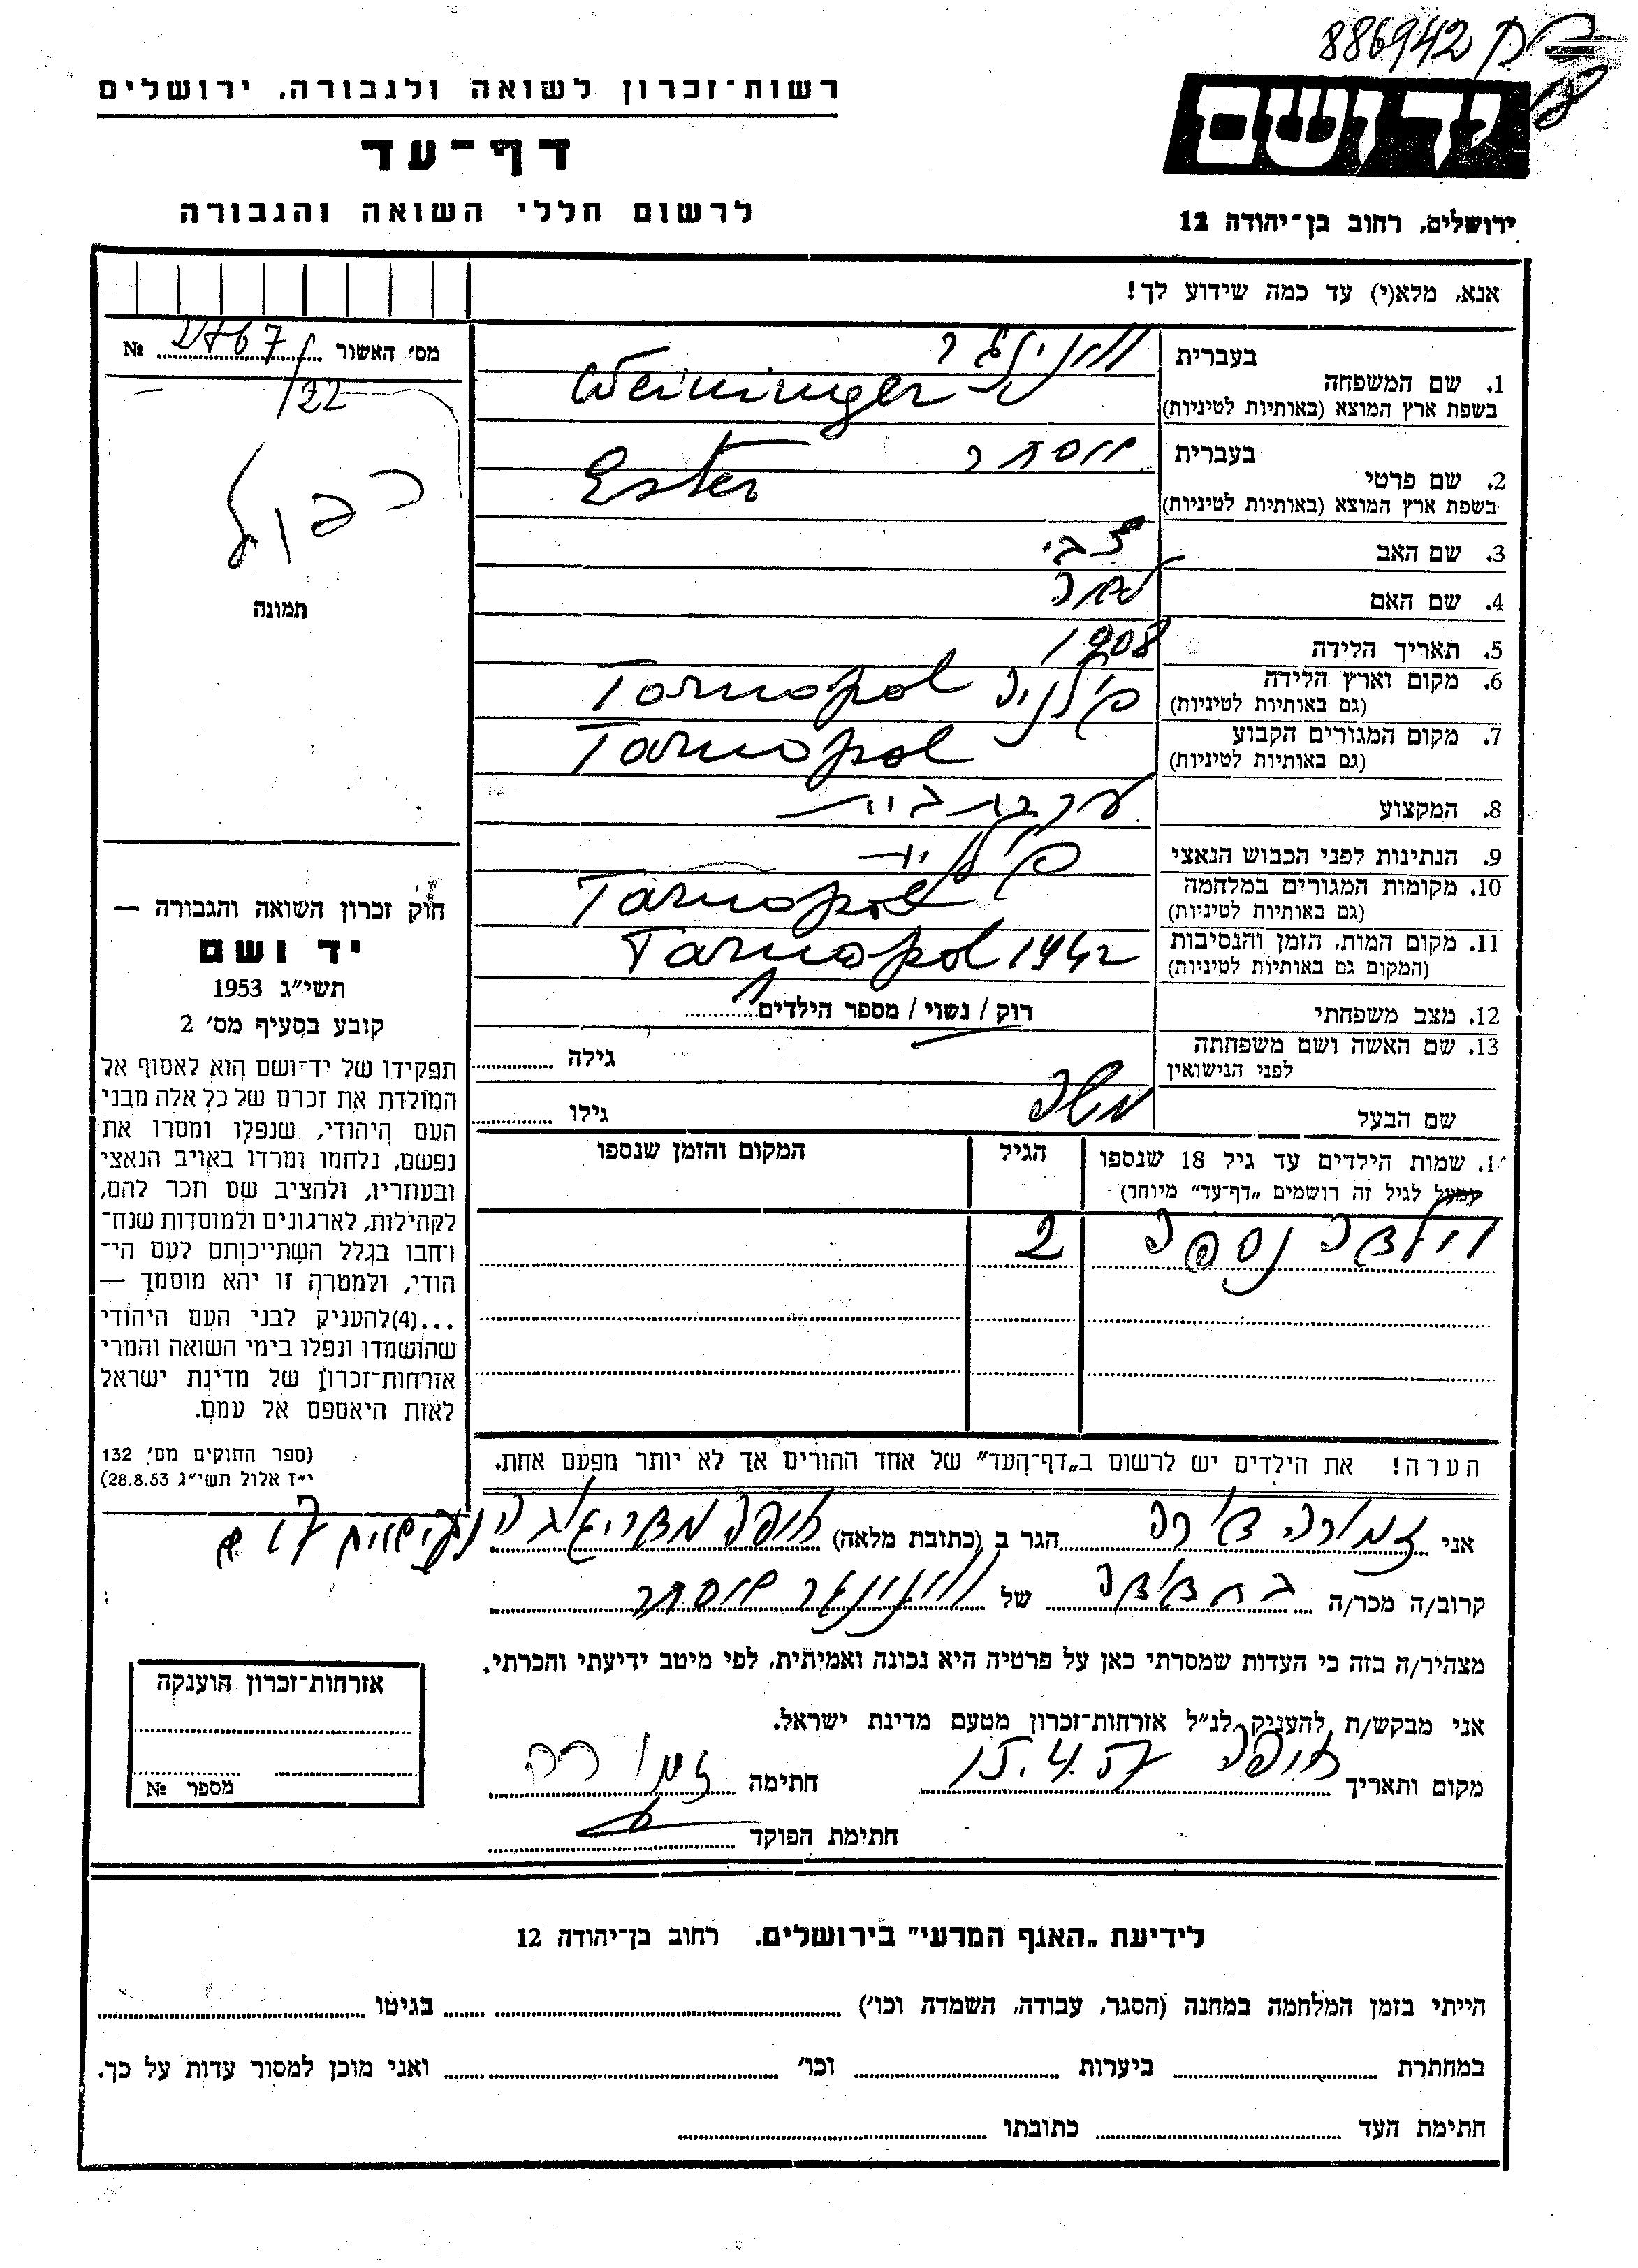 886942
רשות-זכרון לשואה ולגבורה, ירושלים
דף-עד
לרשום חללי השואה והגבורה
יד ושם
ירושלים, רחוב בן-יהודה 12
אנא, מלא(י) עד כמה שידוע לך!
מס׳ האשור № 2767/22
תמונה
1. שם המשפחה בעברית
בשפת ארץ המוצא (באותיות לטיניות) Weininger
2. שם פרטי בעברית אסתר
בשפת ארץ המוצא (באותיות לטיניות) Ester
3. שם האב צבי
4. שם האם
5. תאריך הלידה 1908
6. מקום וארץ הלידה (גם באותיות לטיניות) פולניה Tarnopol
7. מקום המגורים הקבוע (גם באותיות לטיניות) Tarnopol
8. המקצוע עקרת בית
9. הנתינות לפני הכבוש הנאצי
10. מקומות המגורים במלחמה (גם באותיות לטיניות) Tarnopol
11. מקום המות, הזמן והנסיבות (המקום גם באותיות לטיניות) Tarnopol 1942
12. מצב משפחתי רוק / נשוי / מספר הילדים 1
13. שם האשה ושם משפחתה לפני הנישואין גילה
שם הבעל משה גילו
1. שמות הילדים עד גיל 18 שנספו הגיל המקום והזמן שנספו
(מעל לגיל זה רושמים „דף-עד״ מיוחד)
הילדה נספה 2
הערה! את הילדים יש לרשום ב„דף-העד״ של אחד ההורים אך לא יותר מפעם אחת.
חוק זכרון השואה והגבורה —
יד ושם
תשי״ג 1953
קובע בסעיף מס׳ 2
תפקידו של יד-ושם הוא לאסוף אל
המולדת את זכרם של כל אלה מבני
העם היהודי, שנפלו ומסרו את
נפשם, נלחמו ומרדו באויב הנאצי
ובעוזריו, ולהציב שם וזכר להם,
לקהילות, לארגונים ולמוסדות שנח-
רחבו בגלל השתייכותם לעם הי-
הודי, ולמטרה זו יהא מוסמך —
...(4)להעניק לבני העם היהודי
שהושמדו ונפלו בימי השואה והמרי
אזרחות-זכרון של מדינת ישראל
לאות היאספם אל עמם.
(ספר החוקים מס׳ 132
י״ז אלול תשי״ג 28.8.53)
אני הגר ב (כתובת מלאה) חיפה
קרוב/ה מכר/ה של וייניגר אסתר
מצהיר/ה בזה כי העדות שמסרתי כאן על פרטיה היא נכונה ואמיתית, לפי מיטב ידיעתי והכרתי.
אני מבקש/ת להעניק לנ״ל אזרחות-זכרון מטעם מדינת ישראל.
מקום ותאריך חיפה 15.4.57 חתימה
חתימת הפוקד
אזרחות-זכרון הוענקה
מספר №
לידיעת „האגף המדעי״ בירושלים. רחוב בן-יהודה 12
הייתי בזמן המלחמה במחנה (הסגר, עבודה, השמדה וכו׳) בגיטו
במחתרת ביערות וכו׳ ואני מוכן למסור עדות על כך.
חתימת העד כתובתו